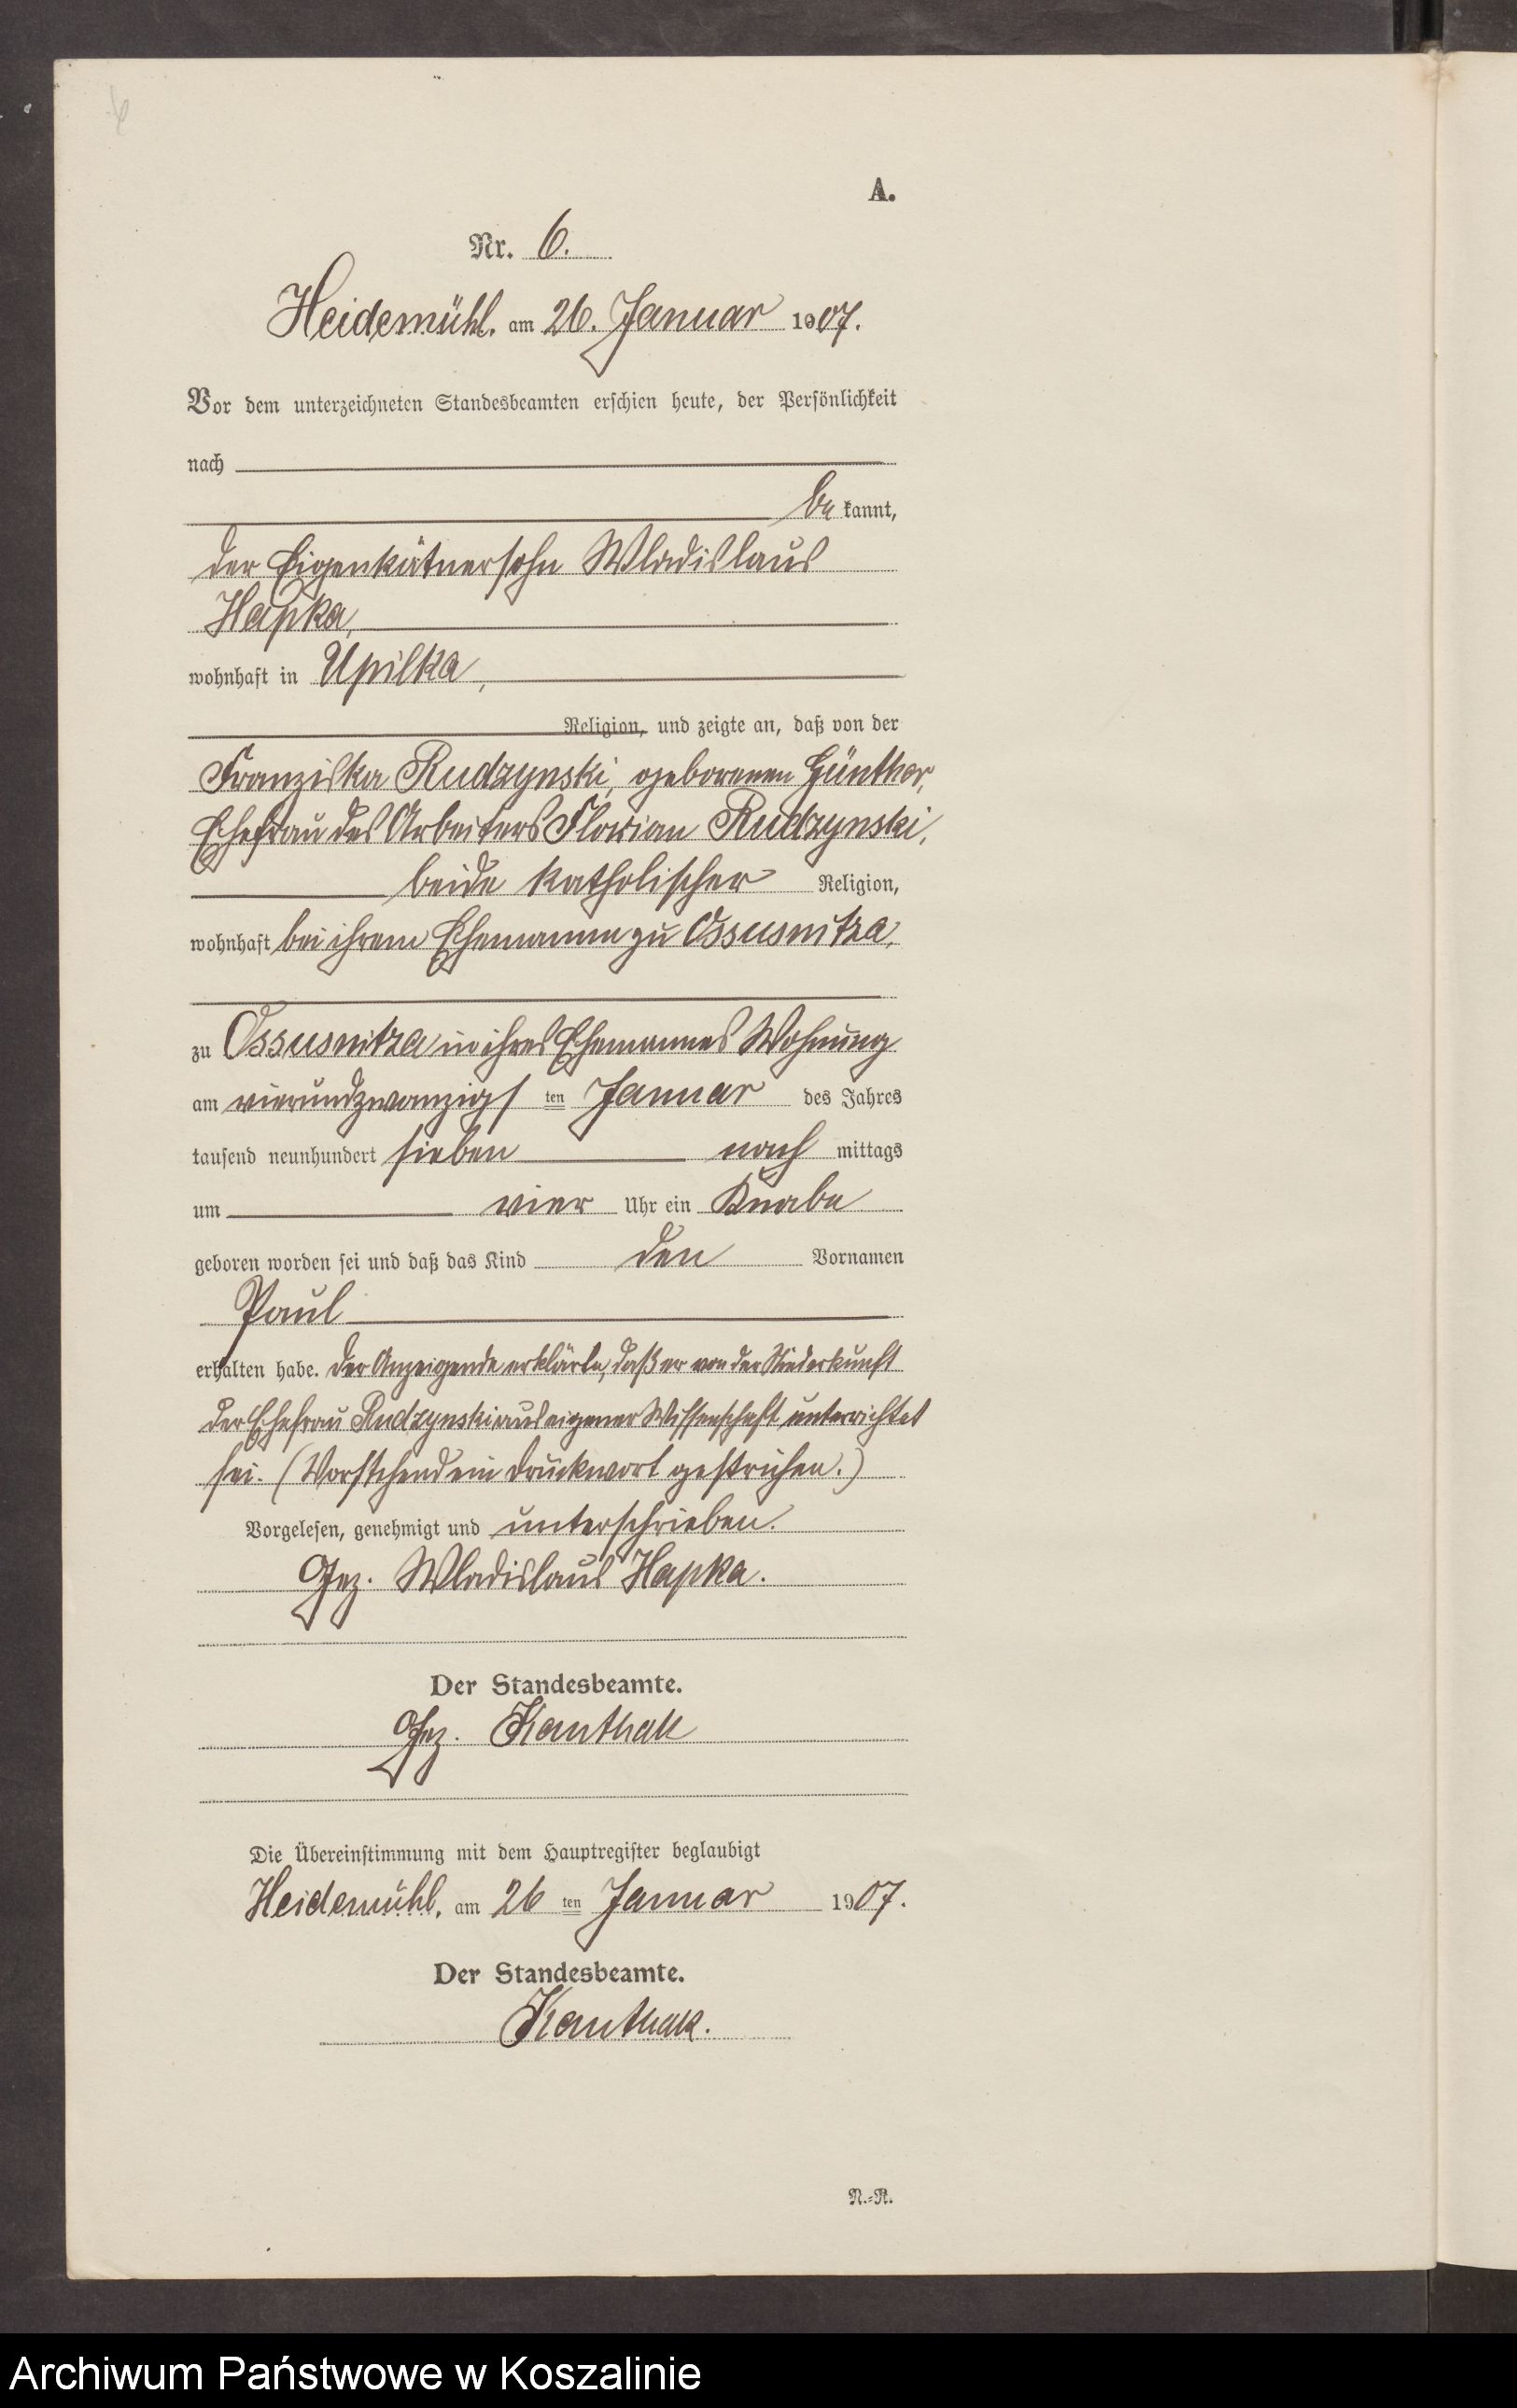 A.
Nr. 6.
Heidemühl. am 26. Januar 1907.
Vor dem unterzeichneten Standesbeamten erschien heute, der Persönlichkeit
nach
be kannt,
der Eigenkätnersohn Wladislaus
Hapka,
wohnhaft in Upilka,
Religion, und zeigte an, daß von der
Franziska Rudzynski, geborenen Günther,
Ehefrau des Arbeiters Florian Rudzynski,
beide katholischer Religion,
wohnhaft bei ihrem Ehemanne zu Ossusnitza,
zu Ossusnitza in ihres Ehemannes Wohnung
am vierundzwanzigsten Januar des Jahres
tausend neunhundert sieben nach mittags
um vier Uhr ein Knabe
geboren worden sei und daß das Kind den Vornamen
Paul
erhalten habe. Der Anzeigende erklärte, daß er von der Niederkunft
der Ehefrau Rudzynski aus eigener Wissenschaft unterrichtet
sei. (Vorstehend ein Druckwort gestrichen.)
Vorgelesen, genehmigt und unterschrieben.
Gez. Wladislaus Hapka.
Der Standesbeamte.
Gez. Kanthak
Die Übereinstimmung mit dem Hauptregister beglaubigt
Heidemühl, am 26 ten Januar 1907.
Der Standesbeamte.
Kanthak.
N.=R.
Archiwum Państwowe w Koszalinie